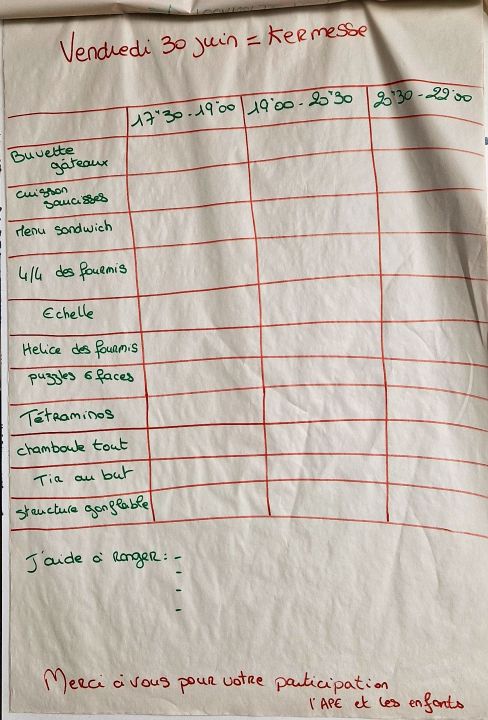 Vendredi 30 juin = Kermesse
17"30 - 19"00 19"00 - 20"30 20"30 - 22"00
Buvette
gâteaux
cuisson
saucisses
Menu sandwich
4/4 des fourmis
Echelle
Helice des fourmis
puzzles 6 faces
Tétraminos
chamboule tout
Tir au but
structure gonflable
J'aide à ranger : -
-
-
-
Merci à vous pour votre participation
l'APE et les enfants